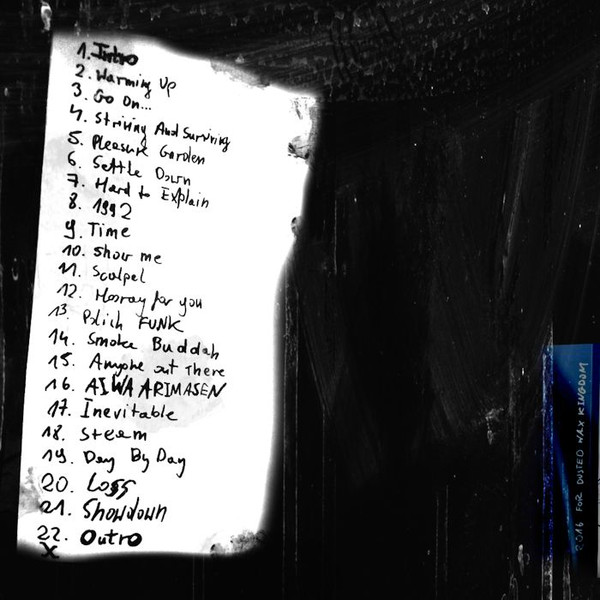 1. Intro
2. Warming Up
3. Go On...
4. Striving And Surviving
5. Pleasure Garden
6. Settle Down
7. Hard to Explain
8. 1992
9. Time
10. Show me
11. Scalpel
12. Hooray for you
13. Polish FUNK
14. Smoke Buddah
15. Anyone out There
16. AI WA ARIMASEN
17. Inevitable
18. Steem
19. Day By Day
20. Loss
21. Showdown
22. Outro
X
2016 FOR DUSTED WAX KINGDOM